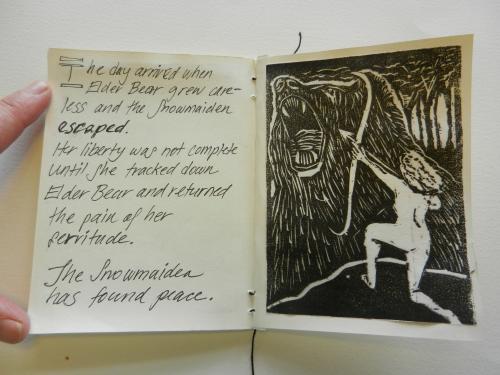 The day arrived when
Elder Bear grew care-
less and the Snowmaiden
escaped.
Her liberty was not complete
until she tracked down
Elder Bear and returned
the pain of her
servitude.
The Snowmaiden
has found peace.